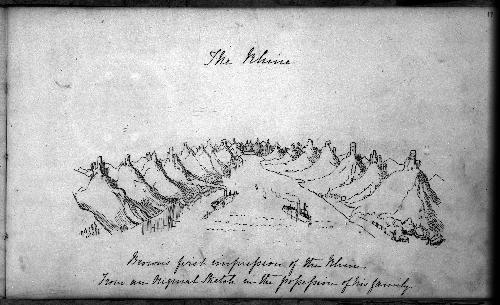 The Rhine
Brown's first impression of the Rhine.
From an Original Sketch in the possession of his family.